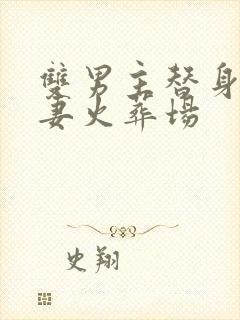 双男主替身
妻火葬场
史翔